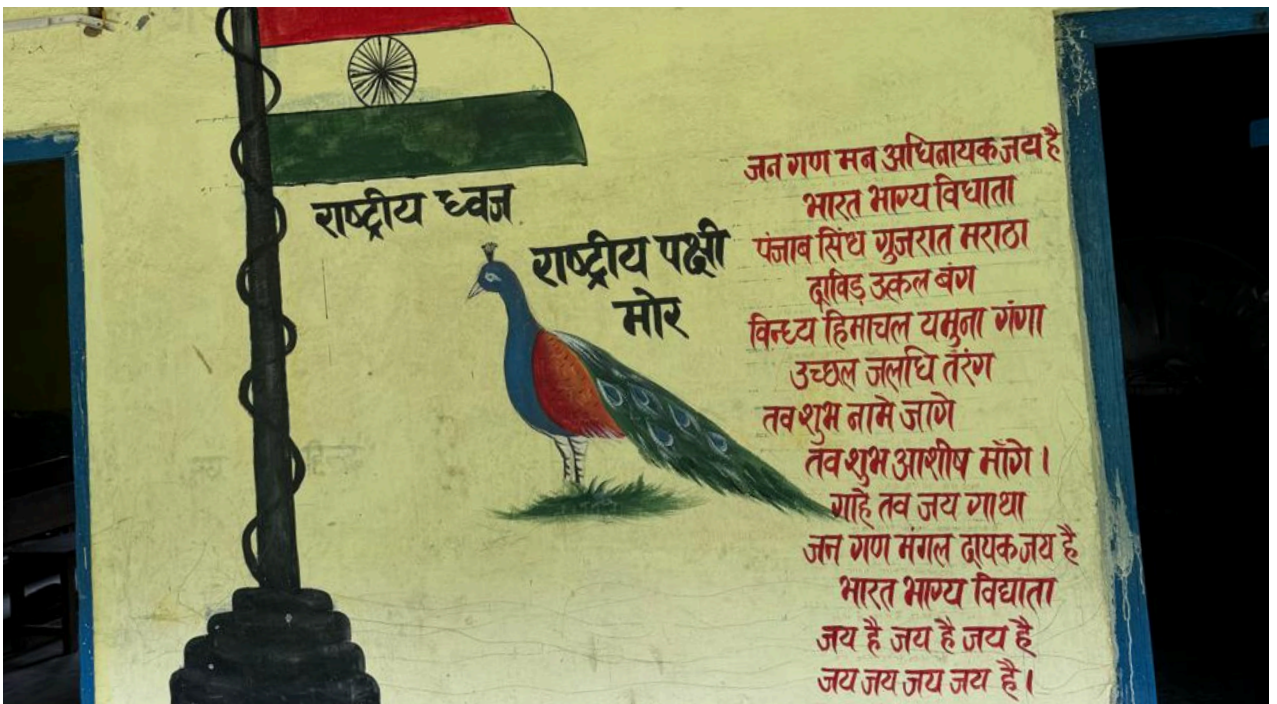 राष्ट्रीय ध्वज
राष्ट्रीय पक्षी
मोर
जन गण मन अधिनायक जय है
भारत भाग्य विधाता
पंजाब सिंध गुजरात मराठा
द्राविड़ उत्कल बंग
विन्ध्य हिमाचल यमुना गंगा
उच्छल जलधि तरंग
तव शुभ नामे जागे
तव शुभ आशीष माँगे।
गाहे तव जय गाथा
जन गण मंगल दायक जय है
भारत भाग्य विद्याता
जय है जय है जय है
जय जय जय जय है।